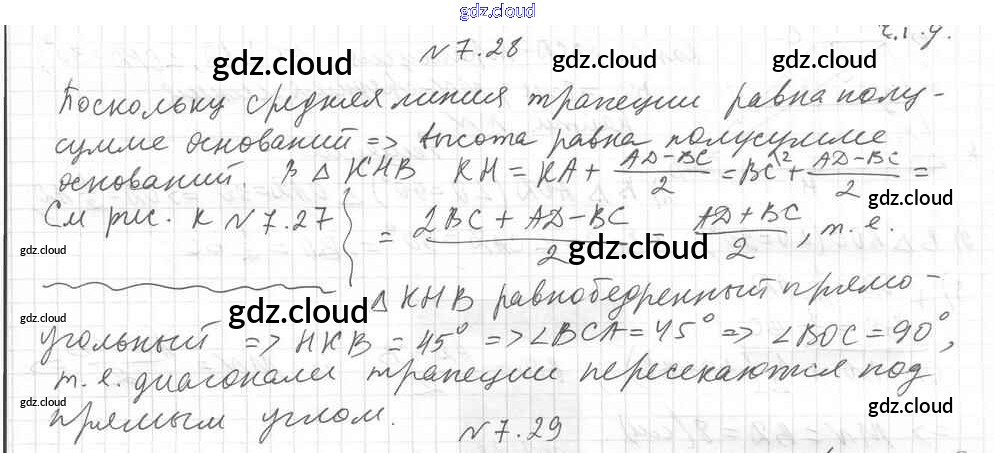 gdz.cloud
ч.т.д.
N 7.28
gdz.cloud gdz.cloud gdz.cloud
Поскольку средняя линия трапеции равна полу-
сумме оснований => высота равна полусумме
оснований В Δ KHB KH = KA + (AD-BC)/2 = BC^\2 + (AD-BC)/2 =
gdz.cloud
См рис. к N 7.27 = (2BC + AD-BC)/2 = (AD+BC)/2, т.е.
gdz.cloud gdz.cloud
Δ KHB равнобедренный прямо-
gdz.cloud gdz.cloud
угольный => HKB = 45° => ∠BCA = 45° => ∠BOC = 90°,
т.е. диагонали трапеции пересекаются под
gdz.cloud gdz.cloud
прямым углом.
N 7.29